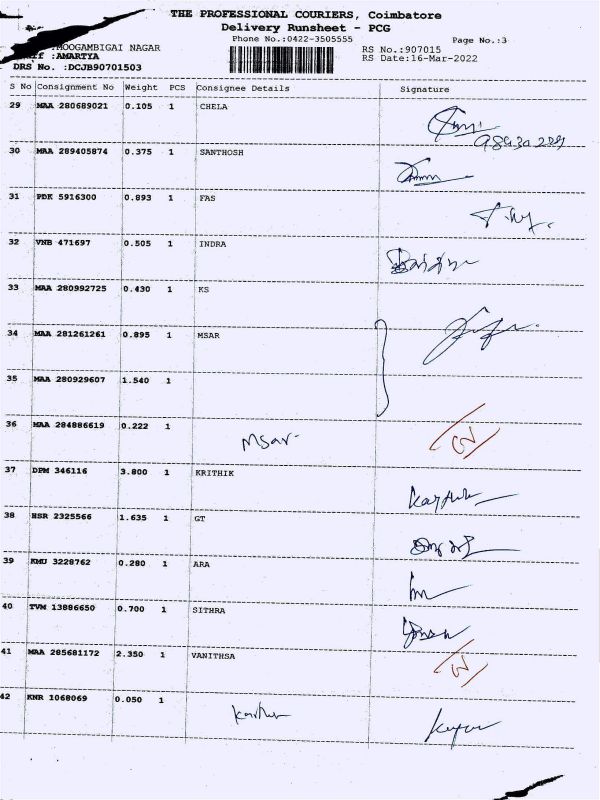 THE PROFESSIONAL COURIERS, Coimbatore
Delivery Runsheet - PCG
Phone No.:0422-3505555
Page No.:3
:MOOGAMBIGAI NAGAR
RS No.:907015
:AMARTYA
RS Date:16-Mar-2022
DRS No. :DCJB90701503
S No Consignment No Weight PCS Consignee Details Signature
29 MAA 280689021 0.105 1 CHELA
30 MAA 289405874 0.375 1 SANTHOSH
31 PDK 5916300 0.893 1 FAS
32 VNB 471697 0.505 1 INDRA
33 MAA 280992725 0.430 1 KS
34 MAA 281261261 0.895 1 MSAR
35 MAA 280929607 1.540 1
36 MAA 284886619 0.222 1 Msar
37 DPM 346116 3.800 1 KRITHIK
38 HSR 2325566 1.635 1 GT
39 KMU 3228762 0.280 1 ARA
40 TVM 13886650 0.700 1 SITHRA
41 MAA 285681172 2.350 1 VANITHSA
42 KNR 1068069 0.050 1